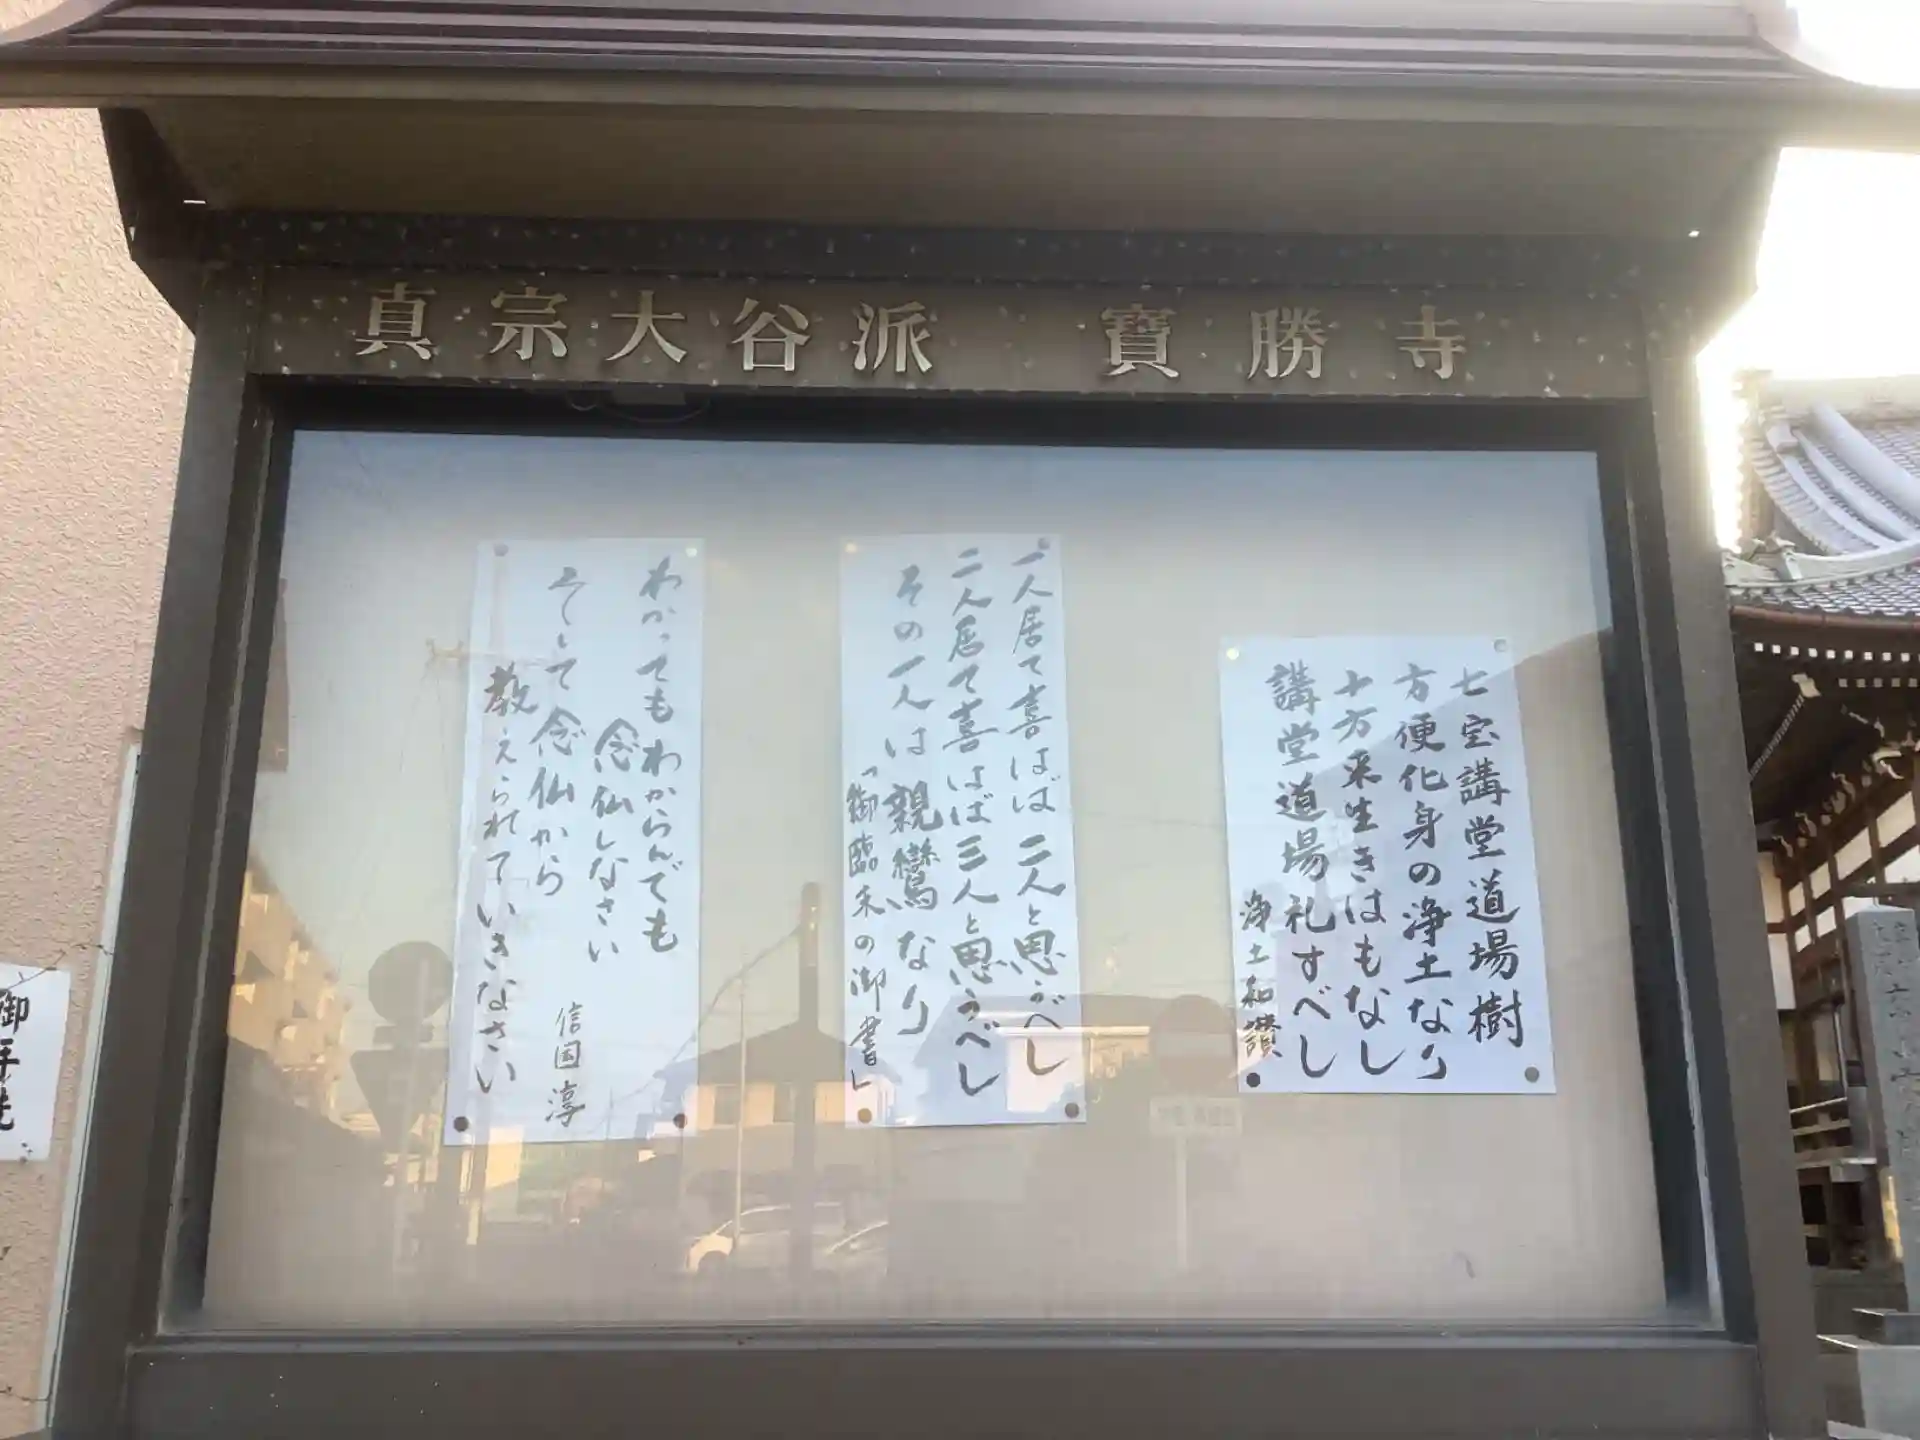 真宗大谷派 寶勝寺
七宝講堂道場樹
方便化身の浄土なり
十方来生きはもなし
講堂道場礼すべし
浄土和讃
一人居て喜ばは二人と思うべし
二人居て喜はば三人と思うべし
その一人は親鸞なり
「御臨末の御書」
わかってもわからんでも
念仏しなさい
そして念仏から
教えられていきなさい
信国淳
御手洗